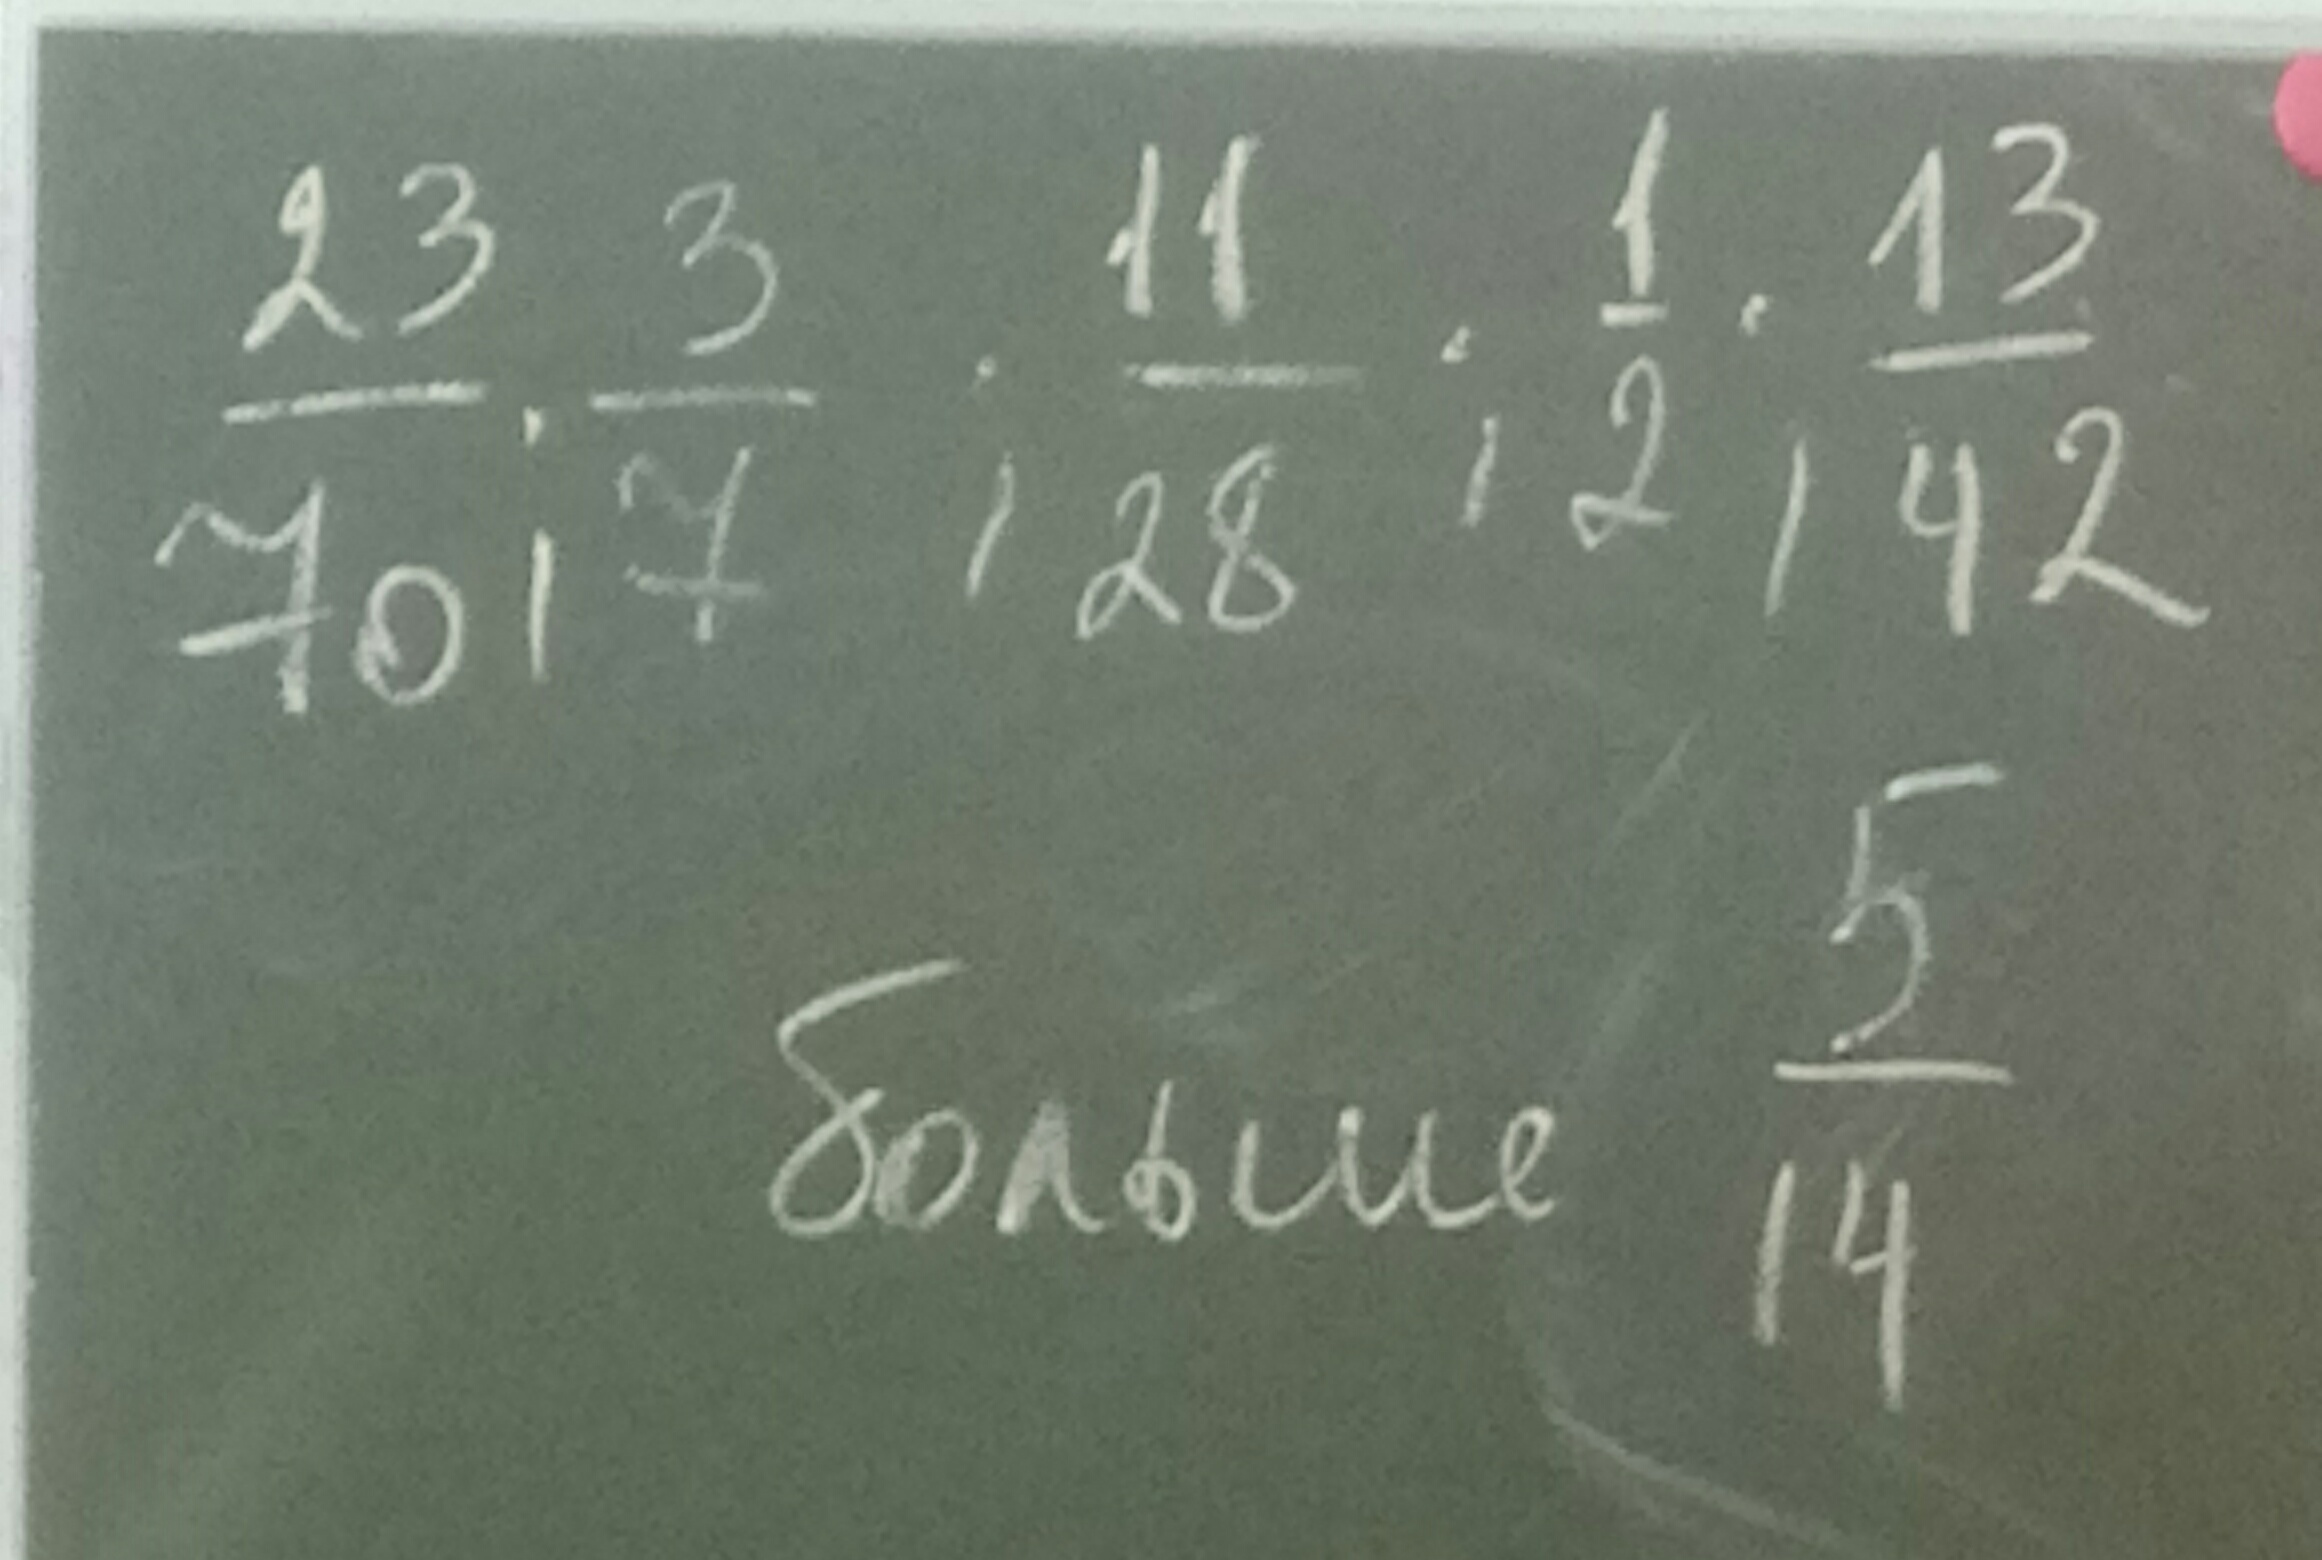 23/70 ; 3/7 ; 11/28 ; 1/2 ; 13/42
больше 5/14